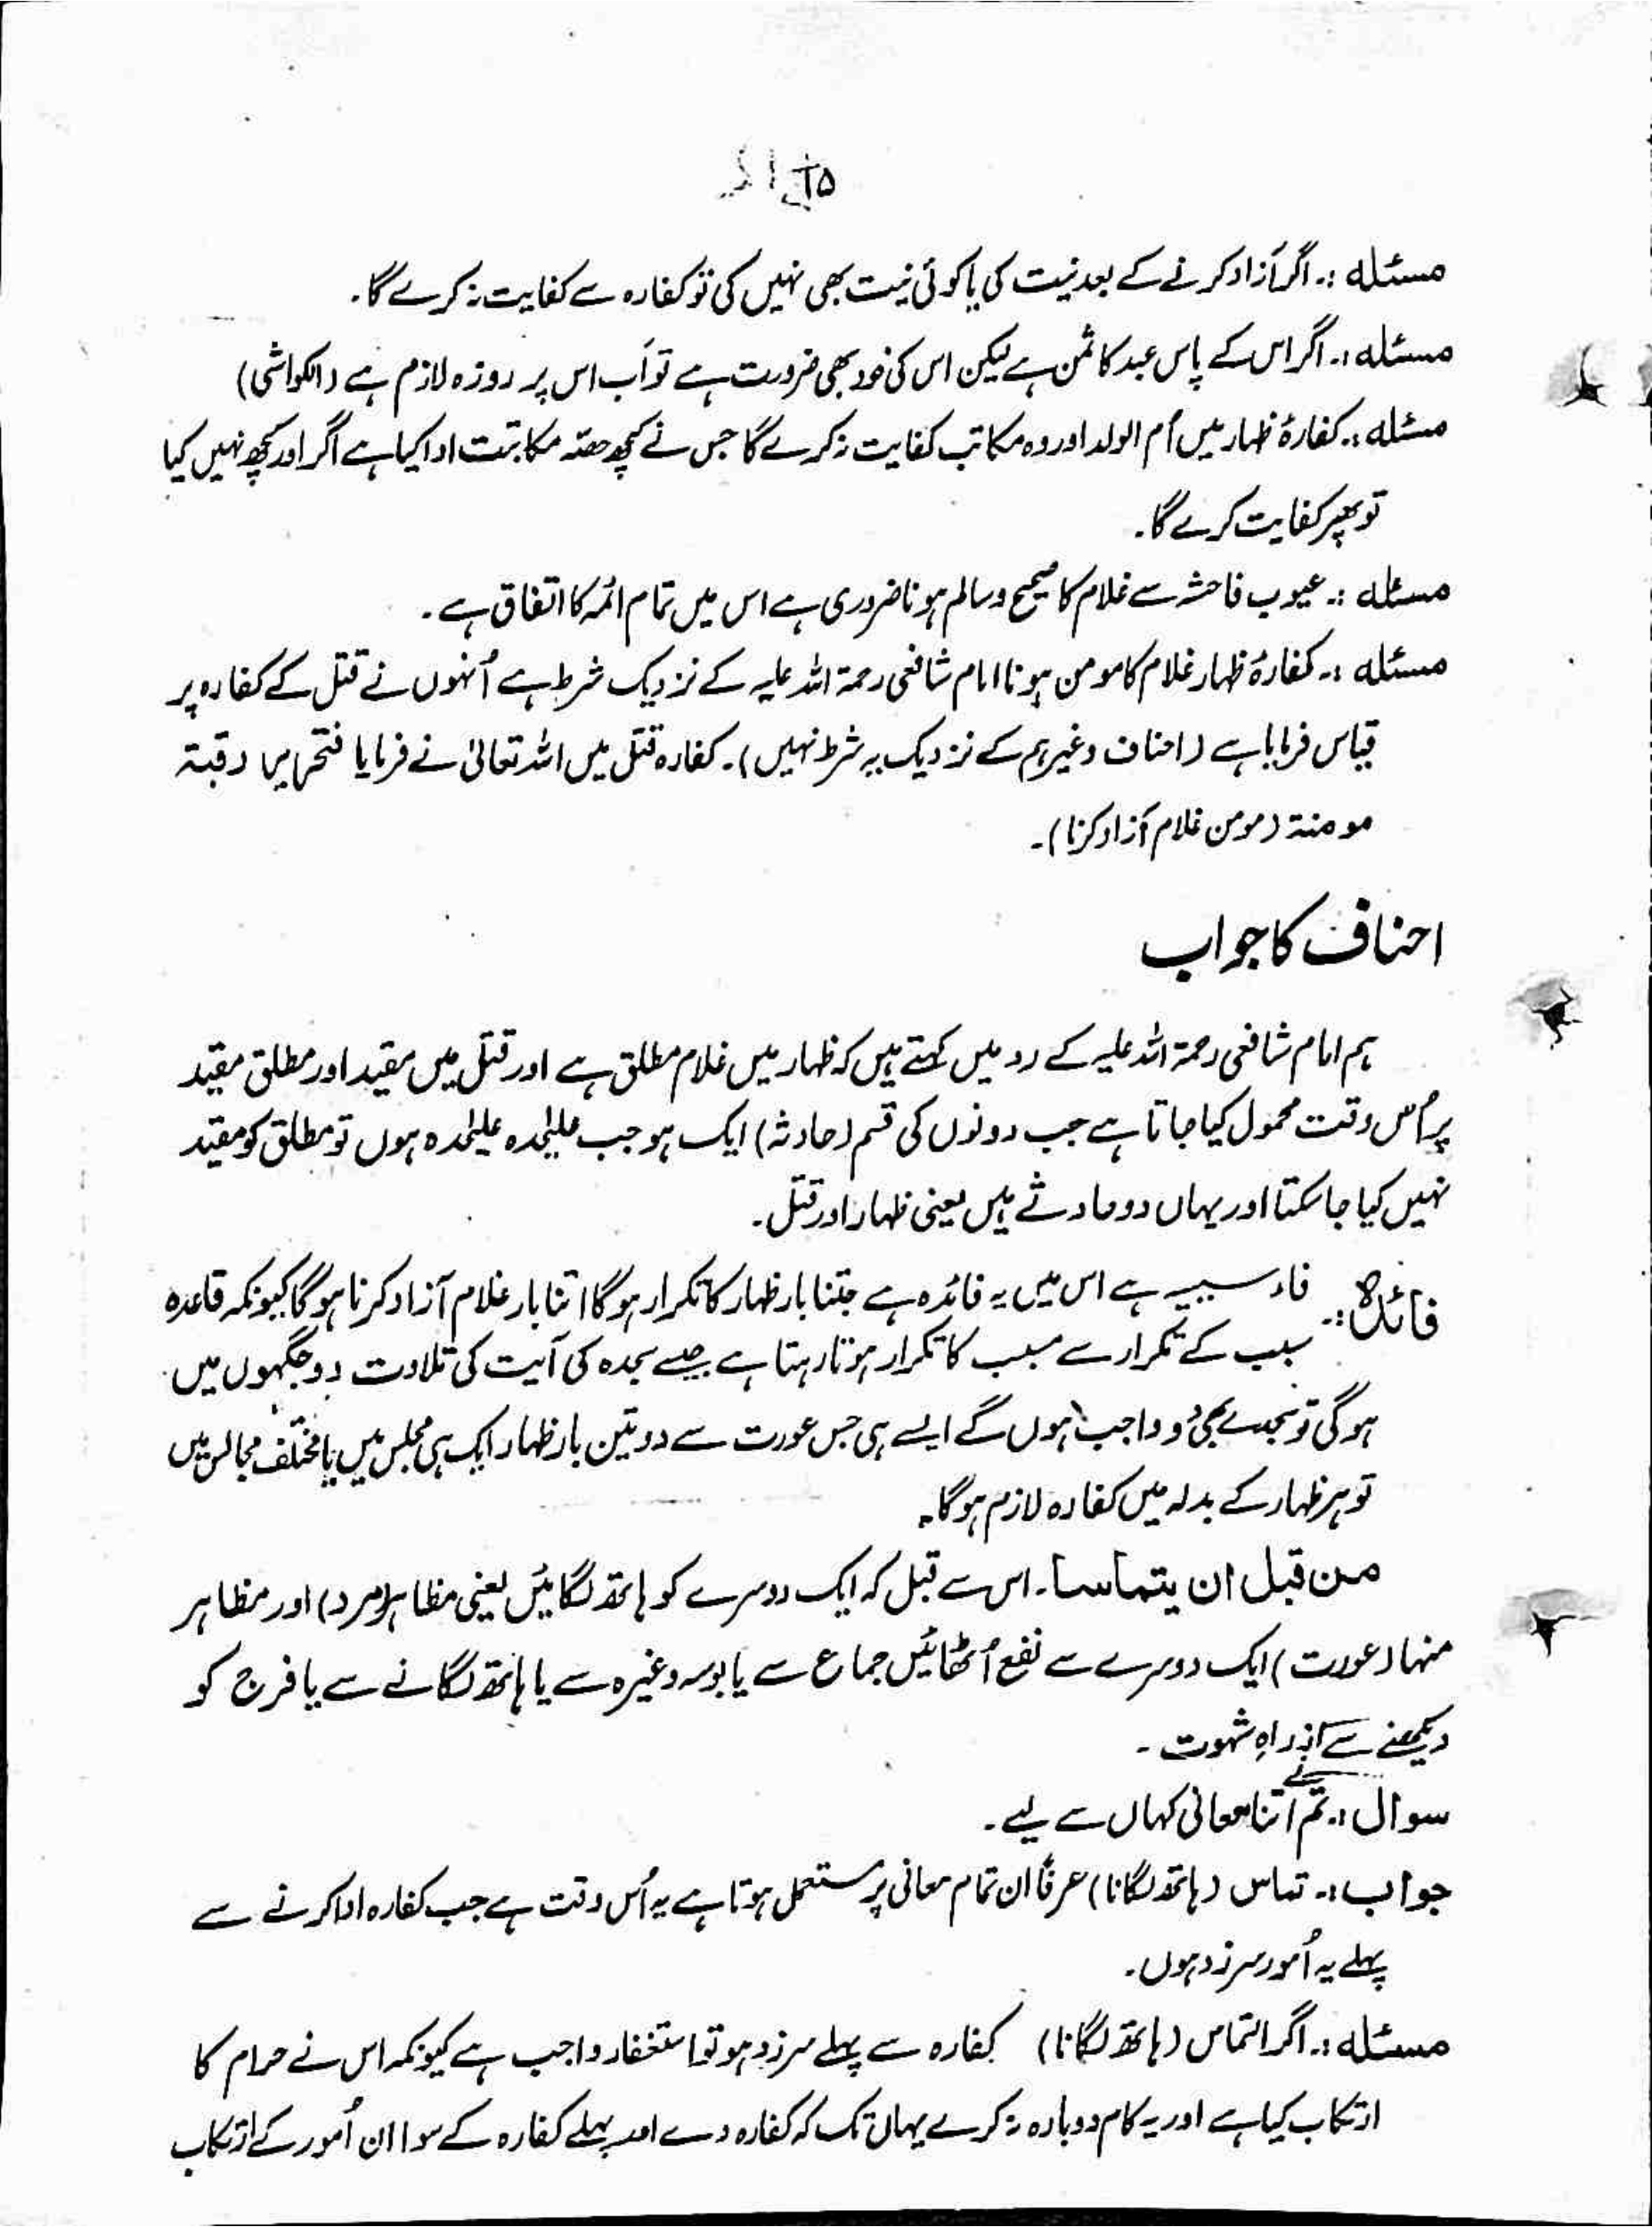 مسئلہ :۔ اگر آزاد کرنے کے بعد نیت کی یا کوئی نیت بھی نہیں کی تو کفارہ سے کفایت نہ کرے گا۔
مسئلہ :۔ اگر اس کے پاس عبد کا ثمن ہے لیکن اس کی خود بھی ضرورت ہے تو اَب اس پر روزہ لازم ہے (الکواشی)
مسئلہ :۔ کفارۂ ظہار میں اُم الولد اور وہ مکاتب کفایت نہ کرے گا جس نے کچھ حصہ مکاتبت ادا کیا ہے اگر اور کچھ نہیں کیا
تو پھر کفایت کرے گا۔
مسئلہ :۔ عیوب فاحشہ سے غلام کا صحیح و سالم ہونا ضروری ہے اس میں تمام ائمہ کا اتفاق ہے۔
مسئلہ :۔ کفارۂ ظہار غلام کا مومن ہونا امام شافعی رحمۃ اللہ علیہ کے نزدیک شرط ہے اُنہوں نے قتل کے کفارہ پر
قیاس فرمایا ہے (احناف وغیرہم کے نزدیک یہ شرط نہیں)۔ کفارہ قتل میں اللہ تعالیٰ نے فرمایا فتحریر رقبۃ
مومنۃ (مومن غلام آزاد کرنا)۔
احناف کا جواب
ہم امام شافعی رحمۃ اللہ علیہ کے رد میں کہتے ہیں کہ ظہار میں غلام مطلق ہے اور قتل میں مقید اور مطلق مقید
پر اُس وقت محمول کیا جاتا ہے جب دونوں کی قسم (حادثہ) ایک ہو جب علیٰحدہ علیٰحدہ ہوں تو مطلق کو مقید
نہیں کیا جا سکتا اور یہاں دو حادثے ہیں یعنی ظہار اور قتل۔
فائدہ :۔ فاء سببیہ ہے اس میں یہ فائدہ ہے جتنا بار ظہار کا تکرار ہوگا اتنا بار غلام آزاد کرنا ہوگا کیونکہ قاعدہ
سبب کے تکرار سے مسبب کا تکرار ہوتا رہتا ہے جیسے سجدہ کی آیت کی تلاوت دو جگہوں میں
ہوگی تو سجدے بھی دو واجب ہوں گے ایسے ہی جس عورت سے دو تین بار ظہار ایک ہی مجلس میں یا مختلف مجالس میں
تو ہر ظہار کے بدلہ میں کفارہ لازم ہوگا۔
من قبل ان یتماسا۔ اس سے قبل کہ ایک دوسرے کو ہاتھ لگائیں یعنی مظاہر (مرد) اور مظاہر
منہا (عورت) ایک دوسرے سے نفع اُٹھائیں جماع سے یا بوسہ وغیرہ سے یا ہاتھ لگانے سے یا فرج کو
دیکھنے سے از راہِ شہوت۔
سوال :۔ تم نے اتنا معانی کہاں سے لیے۔
جواب :۔ تماس (ہاتھ لگانا) عرفاً ان تمام معانی پر مستعمل ہوتا ہے یہ اُس وقت ہے جب کفارہ ادا کرنے سے
پہلے یہ اُمور سرزد ہوں۔
مسئلہ :۔ اگر التماس (ہاتھ لگانا) کفارہ سے پہلے سرزد ہو تو استغفار واجب ہے کیونکہ اس نے حرام کا
ارتکاب کیا ہے اور یہ کام دوبارہ نہ کرے یہاں تک کہ کفارہ دے اور پہلے کفارہ کے سوا ان اُمور کے ارتکاب